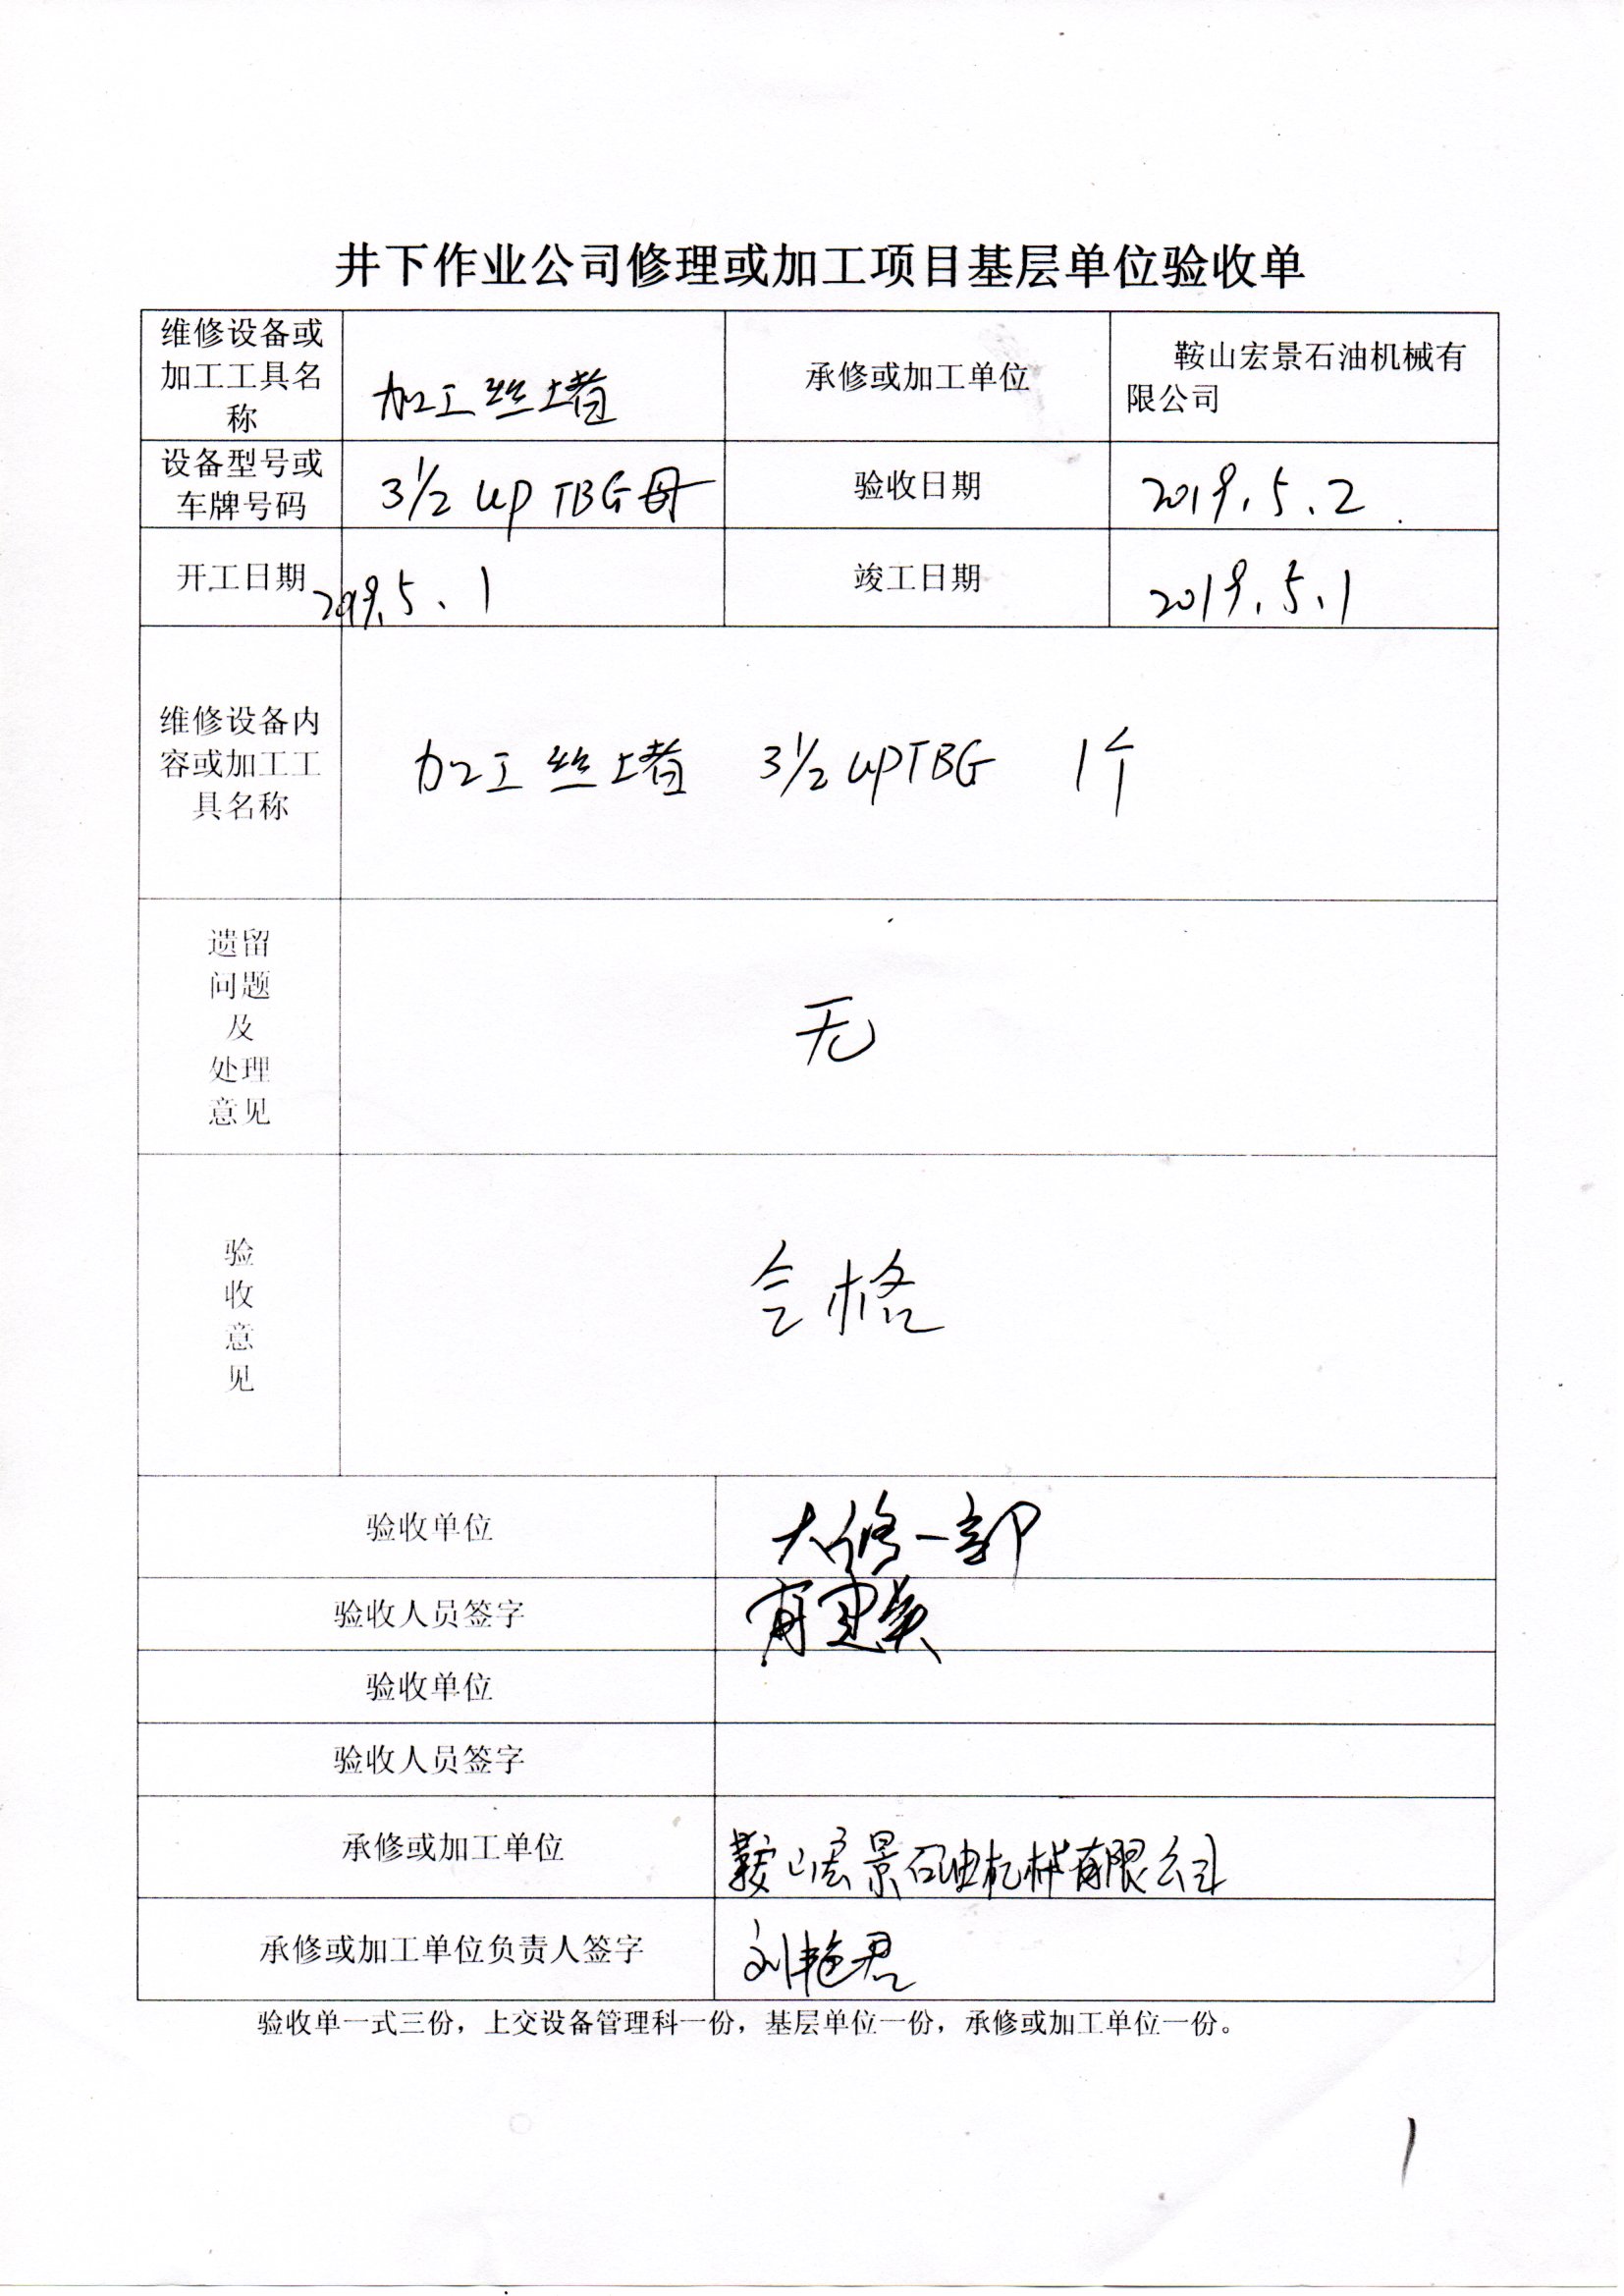 井下作业公司修理或加工项目基层单位验收单
维修设备或
加工工具名
称
加工丝堵
承修或加工单位
鞍山宏景石油机械有
限公司
设备型号或
车牌号码
3½ up TBG母
验收日期
2019.5.2
开工日期
2019.5.1
竣工日期
2019.5.1
维修设备内
容或加工工
具名称
加工丝堵 3½ upTBG 1个
遗留
问题
及
处理
意见
无
验
收
意
见
合格
验收单位
大修一部
验收人员签字
验收单位
验收人员签字
承修或加工单位
鞍山宏景石油机械有限公司
承修或加工单位负责人签字
刘艳君
验收单一式三份，上交设备管理科一份，基层单位一份，承修或加工单位一份。
1